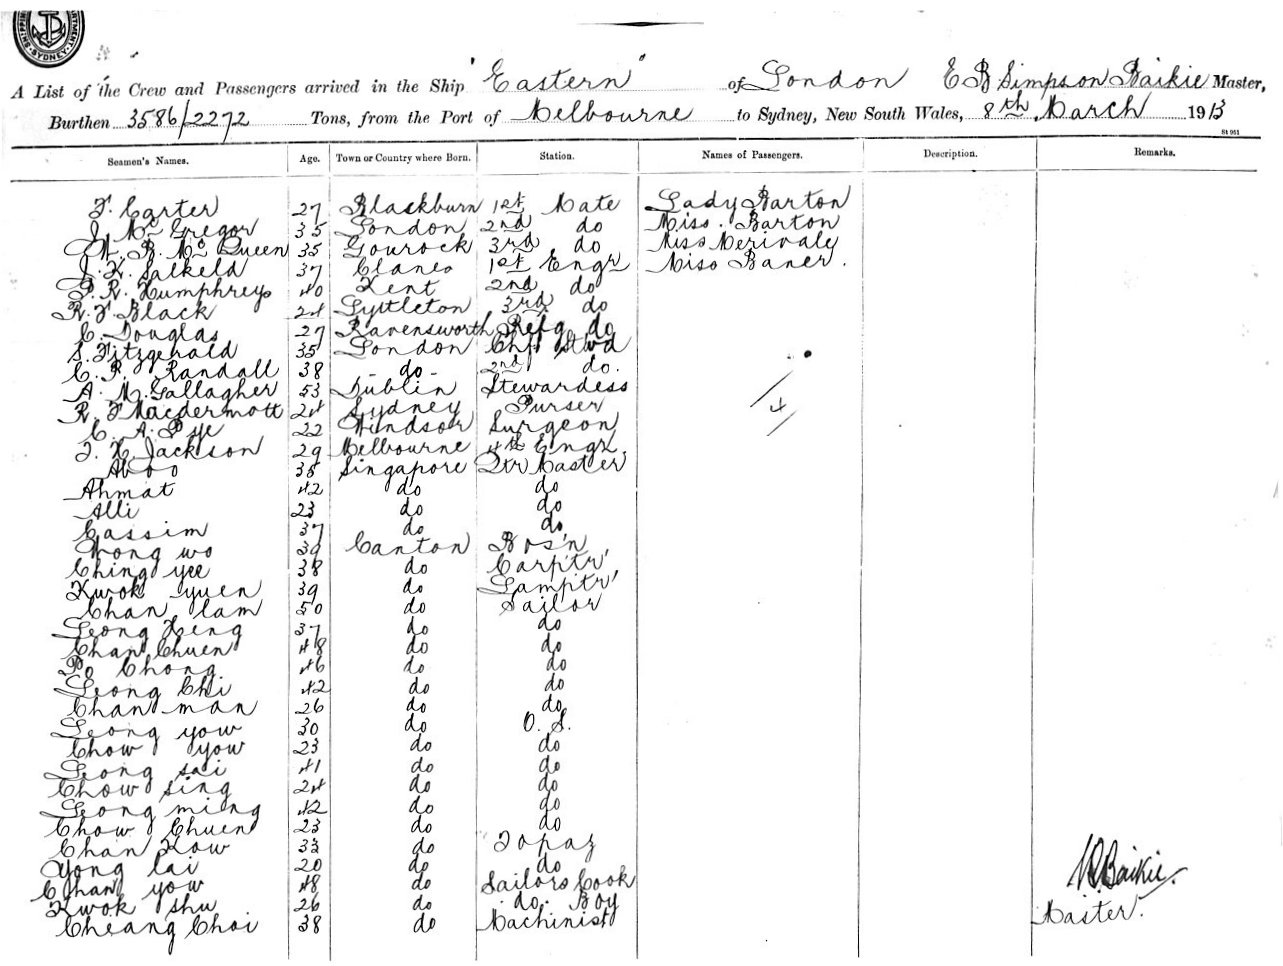 SHIPPING DEPARTMENT SYDNEY
A List of the Crew and Passengers arrived in the Ship "Eastern" of London E B Simpson Baikie Master,
Burthen 3586/2272 Tons, from the Port of Melbourne to Sydney, New South Wales, 8th March 1913
St 951
Seamen's Names. Age. Town or Country where Born. Station. Names of Passengers. Description. Remarks.
F. Carter 27 Blackburn 1st Mate Lady Barton
J. Mc Gregor 35 London 2nd do Miss. Barton
W. B. Mc Queen 35 Gourock 3rd do Miss Merivale
J. H. Salkeld 37 1st Engr Miss Baner.
P. R. Humphreys 40 Kent 2nd do
R. F. Black 24 Lyttleton 3rd do
C. Douglas 27 Ravensworth Refg do
S. Fitzgerald 35 London Chf Stwd
C. P. Randall 38 -do- 2nd do.
A. M. Gallagher 53 Dublin Stewardess
R. F Macdermott 24 Sydney Purser
C. A. Pye 22 Windsor Surgeon
T. H. Jackson 29 Melbourne 4th Engr.
Aboo 38 Singapore Qtr Master
Ahmat 42 do do
Alli 23 do do
Cassim 37 do do
Wong wo 39 Canton Bos'n
Ching yee 38 do Carptr'
Kwok yuen 39 do Lamptr'
Chan lam 50 do Sailor
Leong Heng 37 do do
Chan Chuen 48 do do
Po Chong 46 do do
Leong Chi 42 do do
Chan man 26 do do
Leong yow 30 do O. S.
Chow yow 23 do do
Leong sai 41 do do
Chow sing 24 do do
Leong ming 42 do do
Chow Chuen 23 do do
Chan Kow 33 do Topaz
Yong lai 20 do do
Chan yow 48 do Sailors Cook
Kwok shu 26 do do. Boy
Cheang Choi 38 do Machinist
Baikie.
Master.